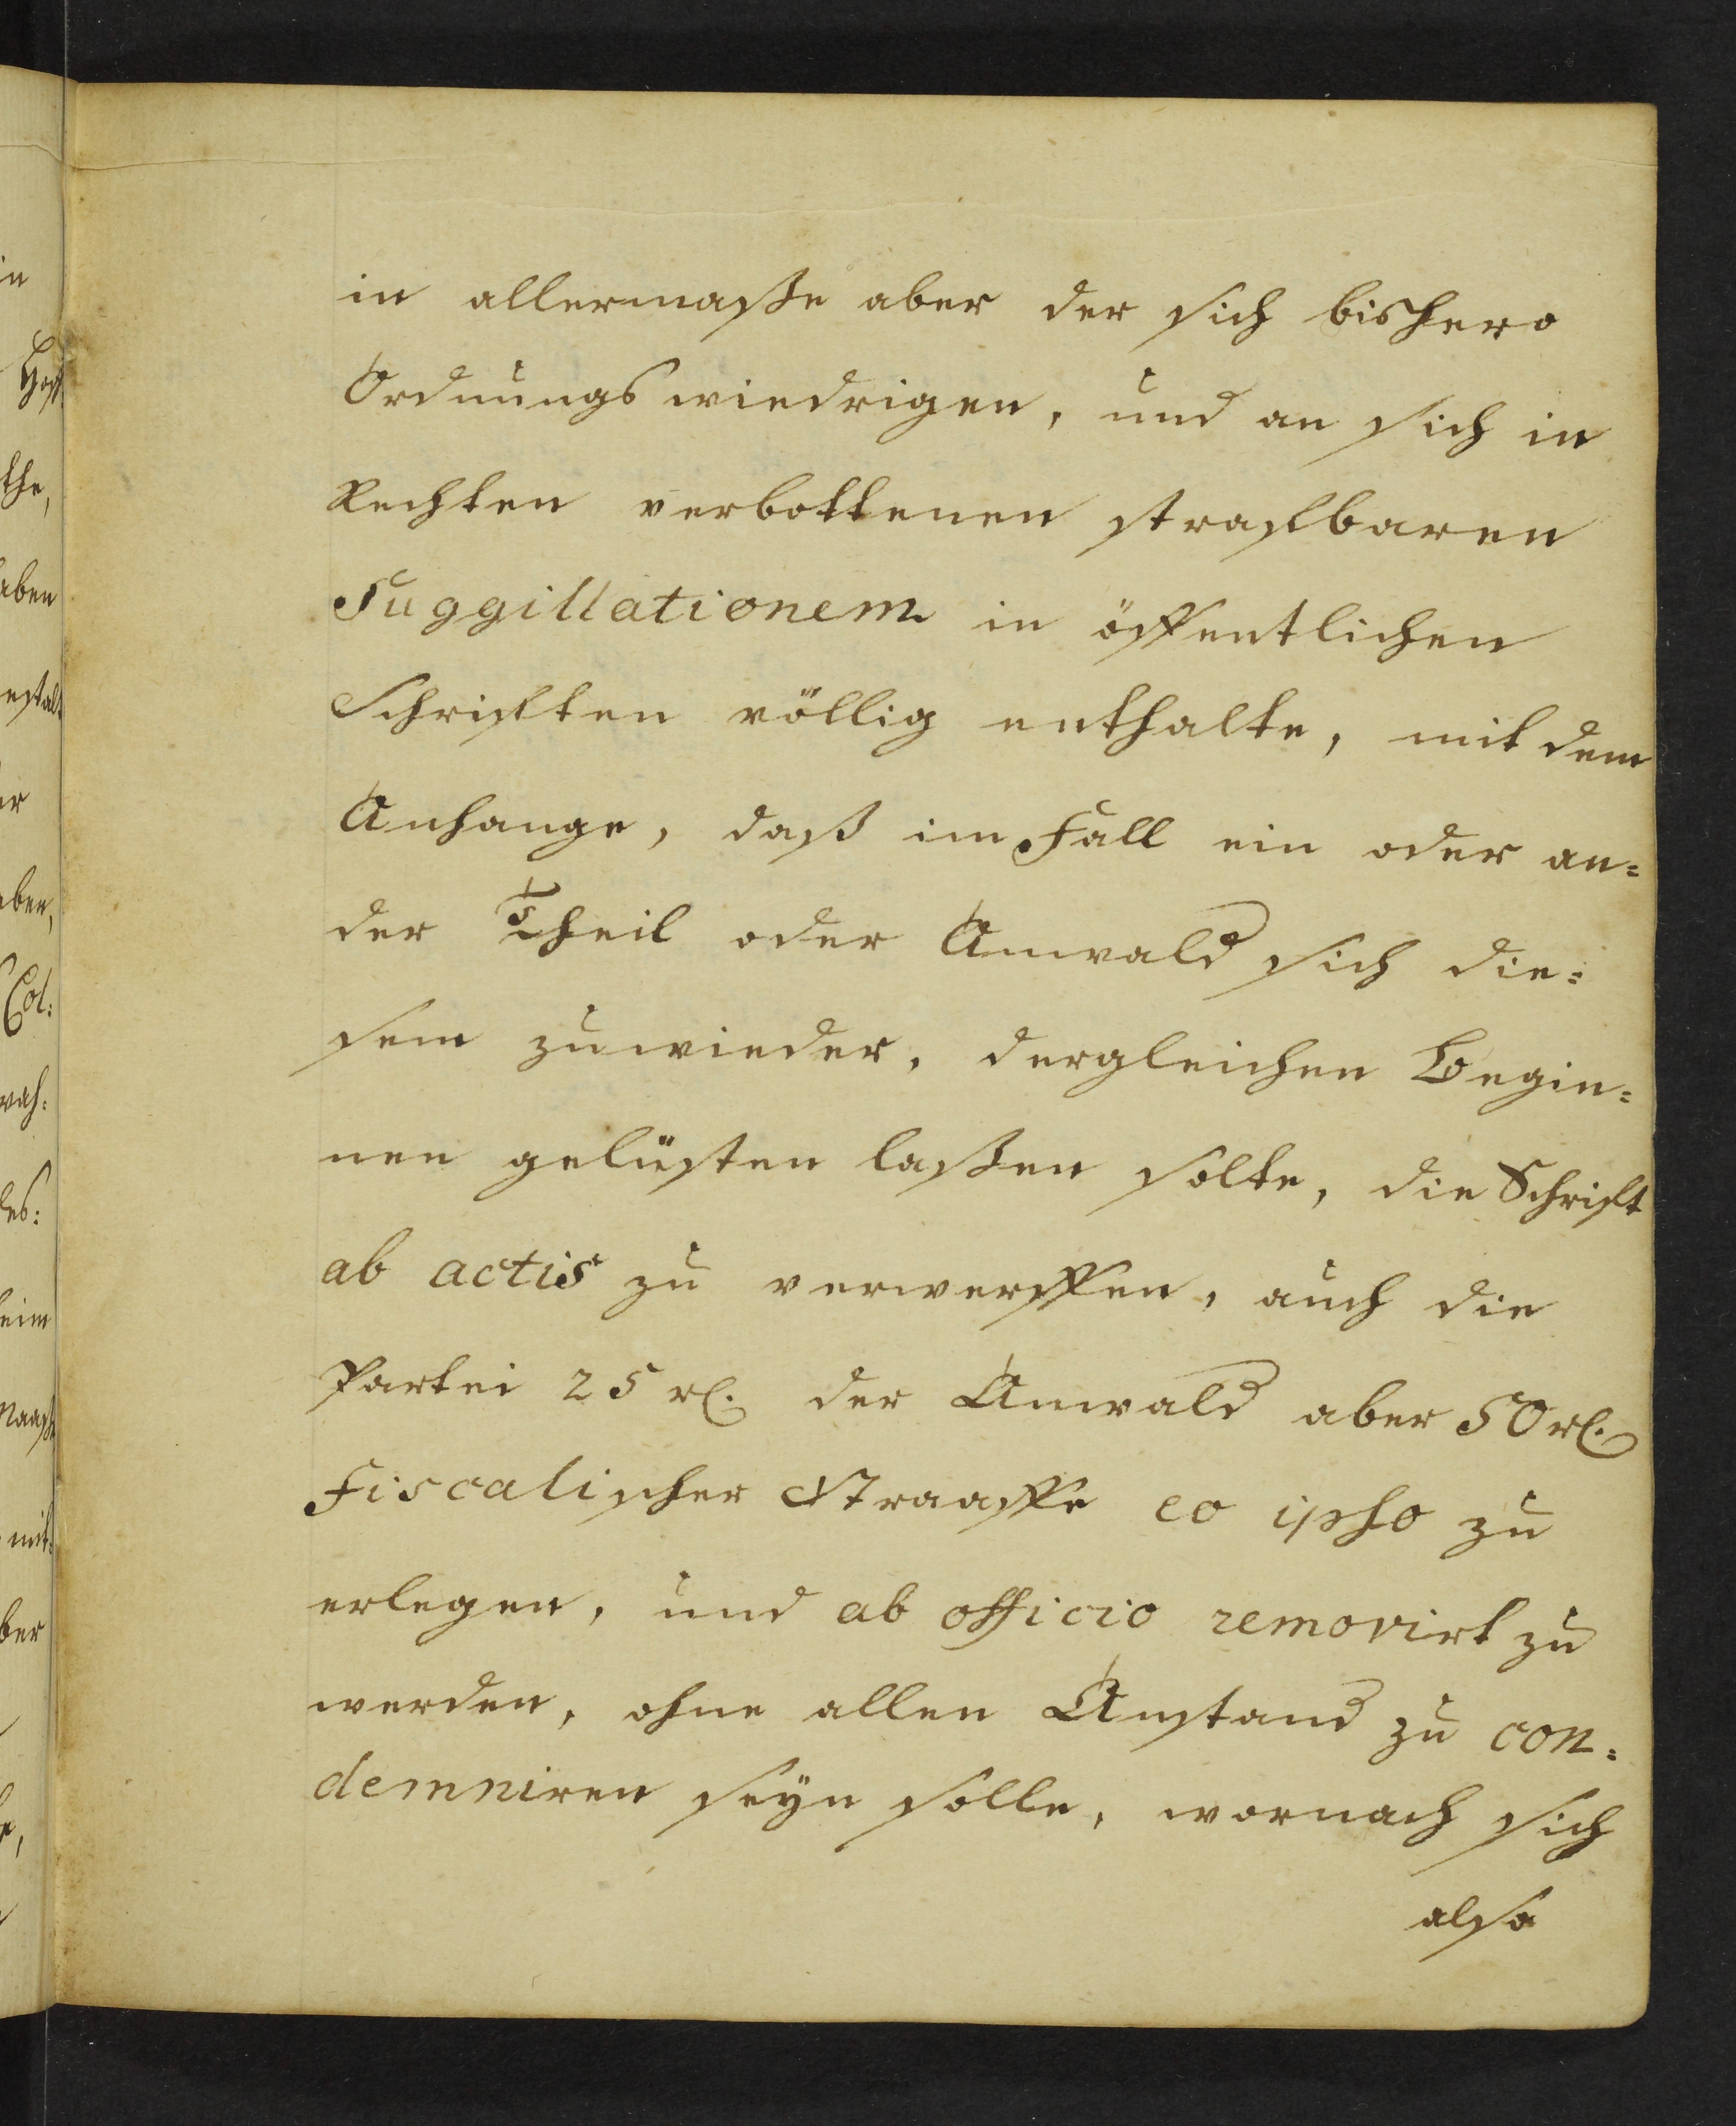 in allermaße aber der sich bishero
Ordnungs wiedrigen, und an sich in
Rechten verbottenen strafbaren
Suggillationem in öffentlichen
Schriften völlig enthalte, mit dem
Anhange, daß im Fall ein oder an=
der Theil oder Anwald sich die=
sem zuwieder, dergleichen Begin=
nen gelüsten laßen solte, die Schrift
ab actis zu verwerffen, auch die
Partei 25 rl. der Anwald aber 50 rl.
Fiscalischer Straaffe eo ipso zu
erlegen, und ab officio removirt zu
werden, ohne allen Anstand zu con=
demniren seyn solle, wornach sich
also